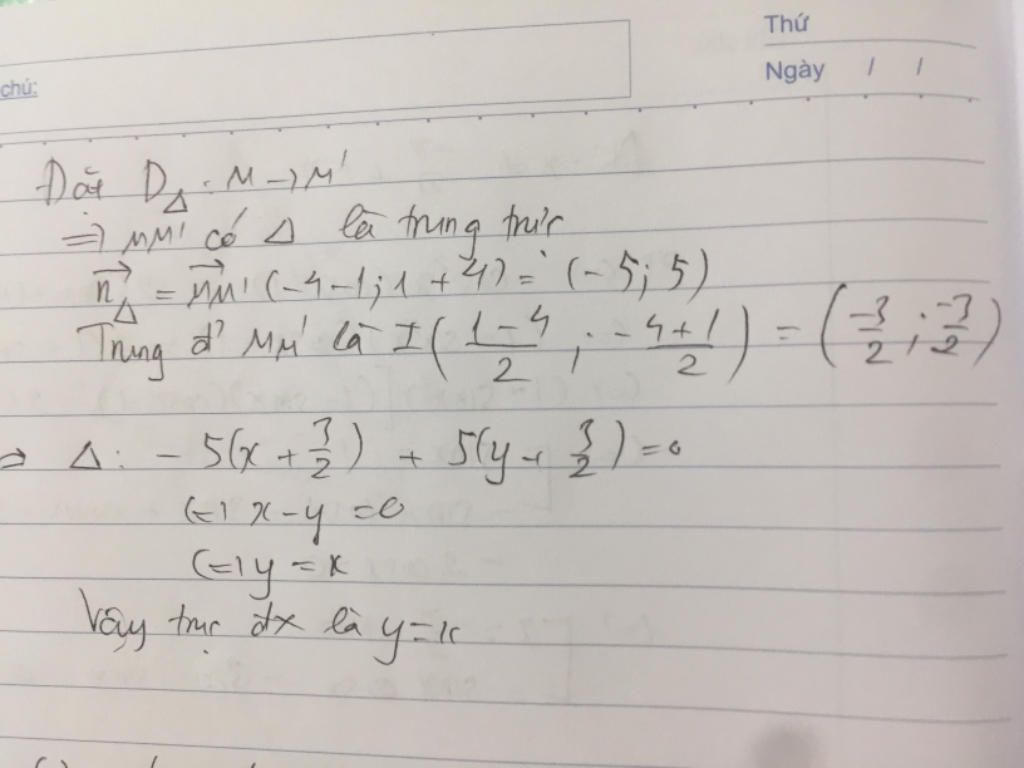 Thứ
Ngày / /
chú:
Đặt D_Δ : M → M'
=> MM' có Δ là trung trực
n_Δ = MM' (-4-1; 1+4) = (-5; 5)
Trung đ' MM' là I ( (1-4)/2 ; (-4+1)/2 ) = ( -3/2 ; -3/2 )
=> Δ: -5(x + 3/2) + 5(y + 3/2) = 0
(=) x - y = 0
(=) y = x
Vậy trục đx là y = x